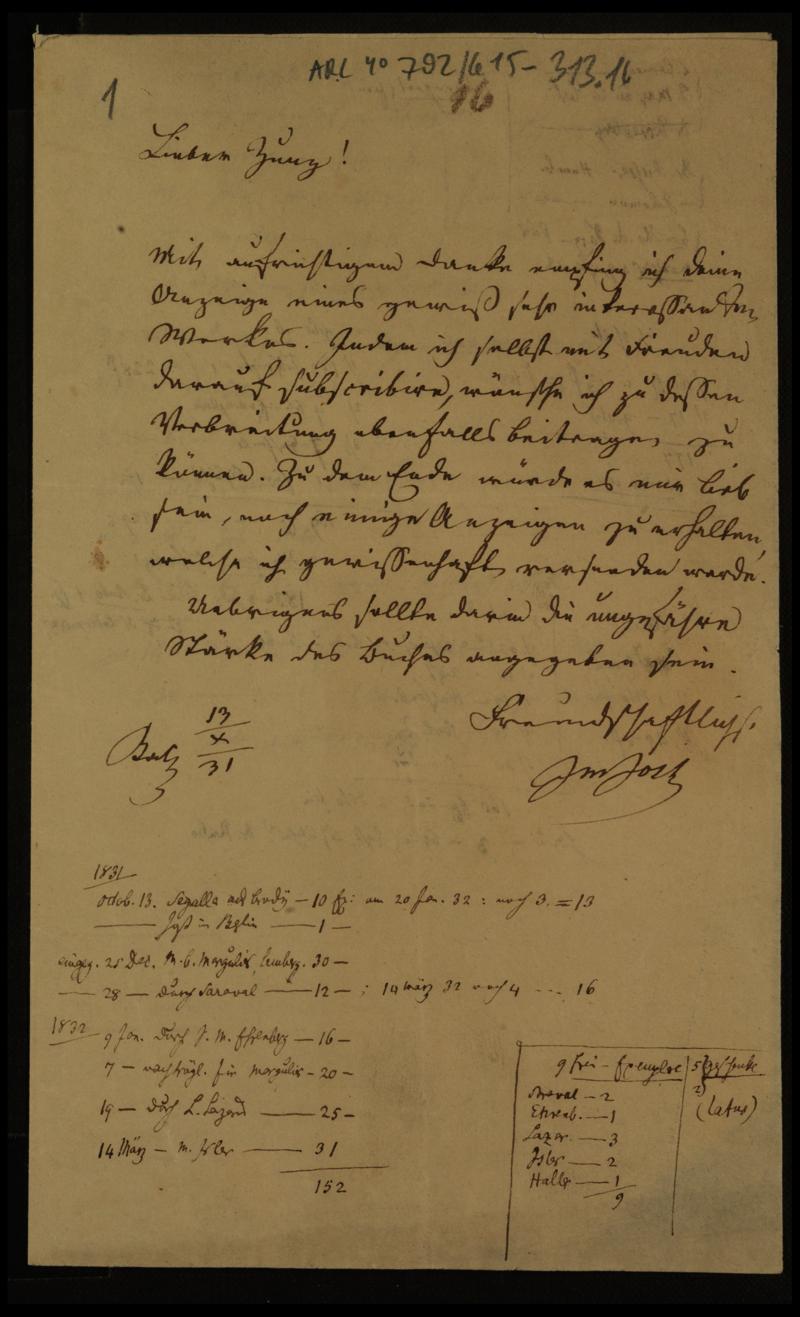 ARC 4° 792/G 15 - 313.16
16
1
Lieber Zunz!
Mit aufrichtigem Danke empfing ich deine
Anzeige eines gewiß sehr interessanten
Werkes. Indem ich selbst mit Freuden
darauf subscribire, wünsche ich zu dessen
Verbreitung ebenfalls beitragen zu
können. Zu dem Ende würde es mir lieb
sein, noch einige Anzeigen zu erhalten,
welche ich gewissenhaft versenden werde.
Uebrigens sollte darin die ungefähre
Stärke des Buches angegeben sein.
Freundschaftlichst
13
X
31
Jost
1831
Octob. 13. Segalla aus Brody — 10 Ex: am 20 Jan. 32: noch 3. = 13
—— Jost in Berlin —— 1 —
eingeg. 25 Dec. M. B. Margulies, Lemberg. 30 —
—— 28 — durch Saraval —— 12 — ; 14 März 32 noch 4 --- 16
1832 9 Jan. durch S. M. Ehrenberg — 16 —
7 — nachträgl. für Margulies - 20 —
19 — durch L. Lazard —— 25 —
14 März — M. Isler —— 31
152
9 Frei-Exemplre
Saraval — 2
Ehrenb. — 1
Lazar. — 3
Isler — 2
Halle — 1
9
5 Geschenke
(latus)